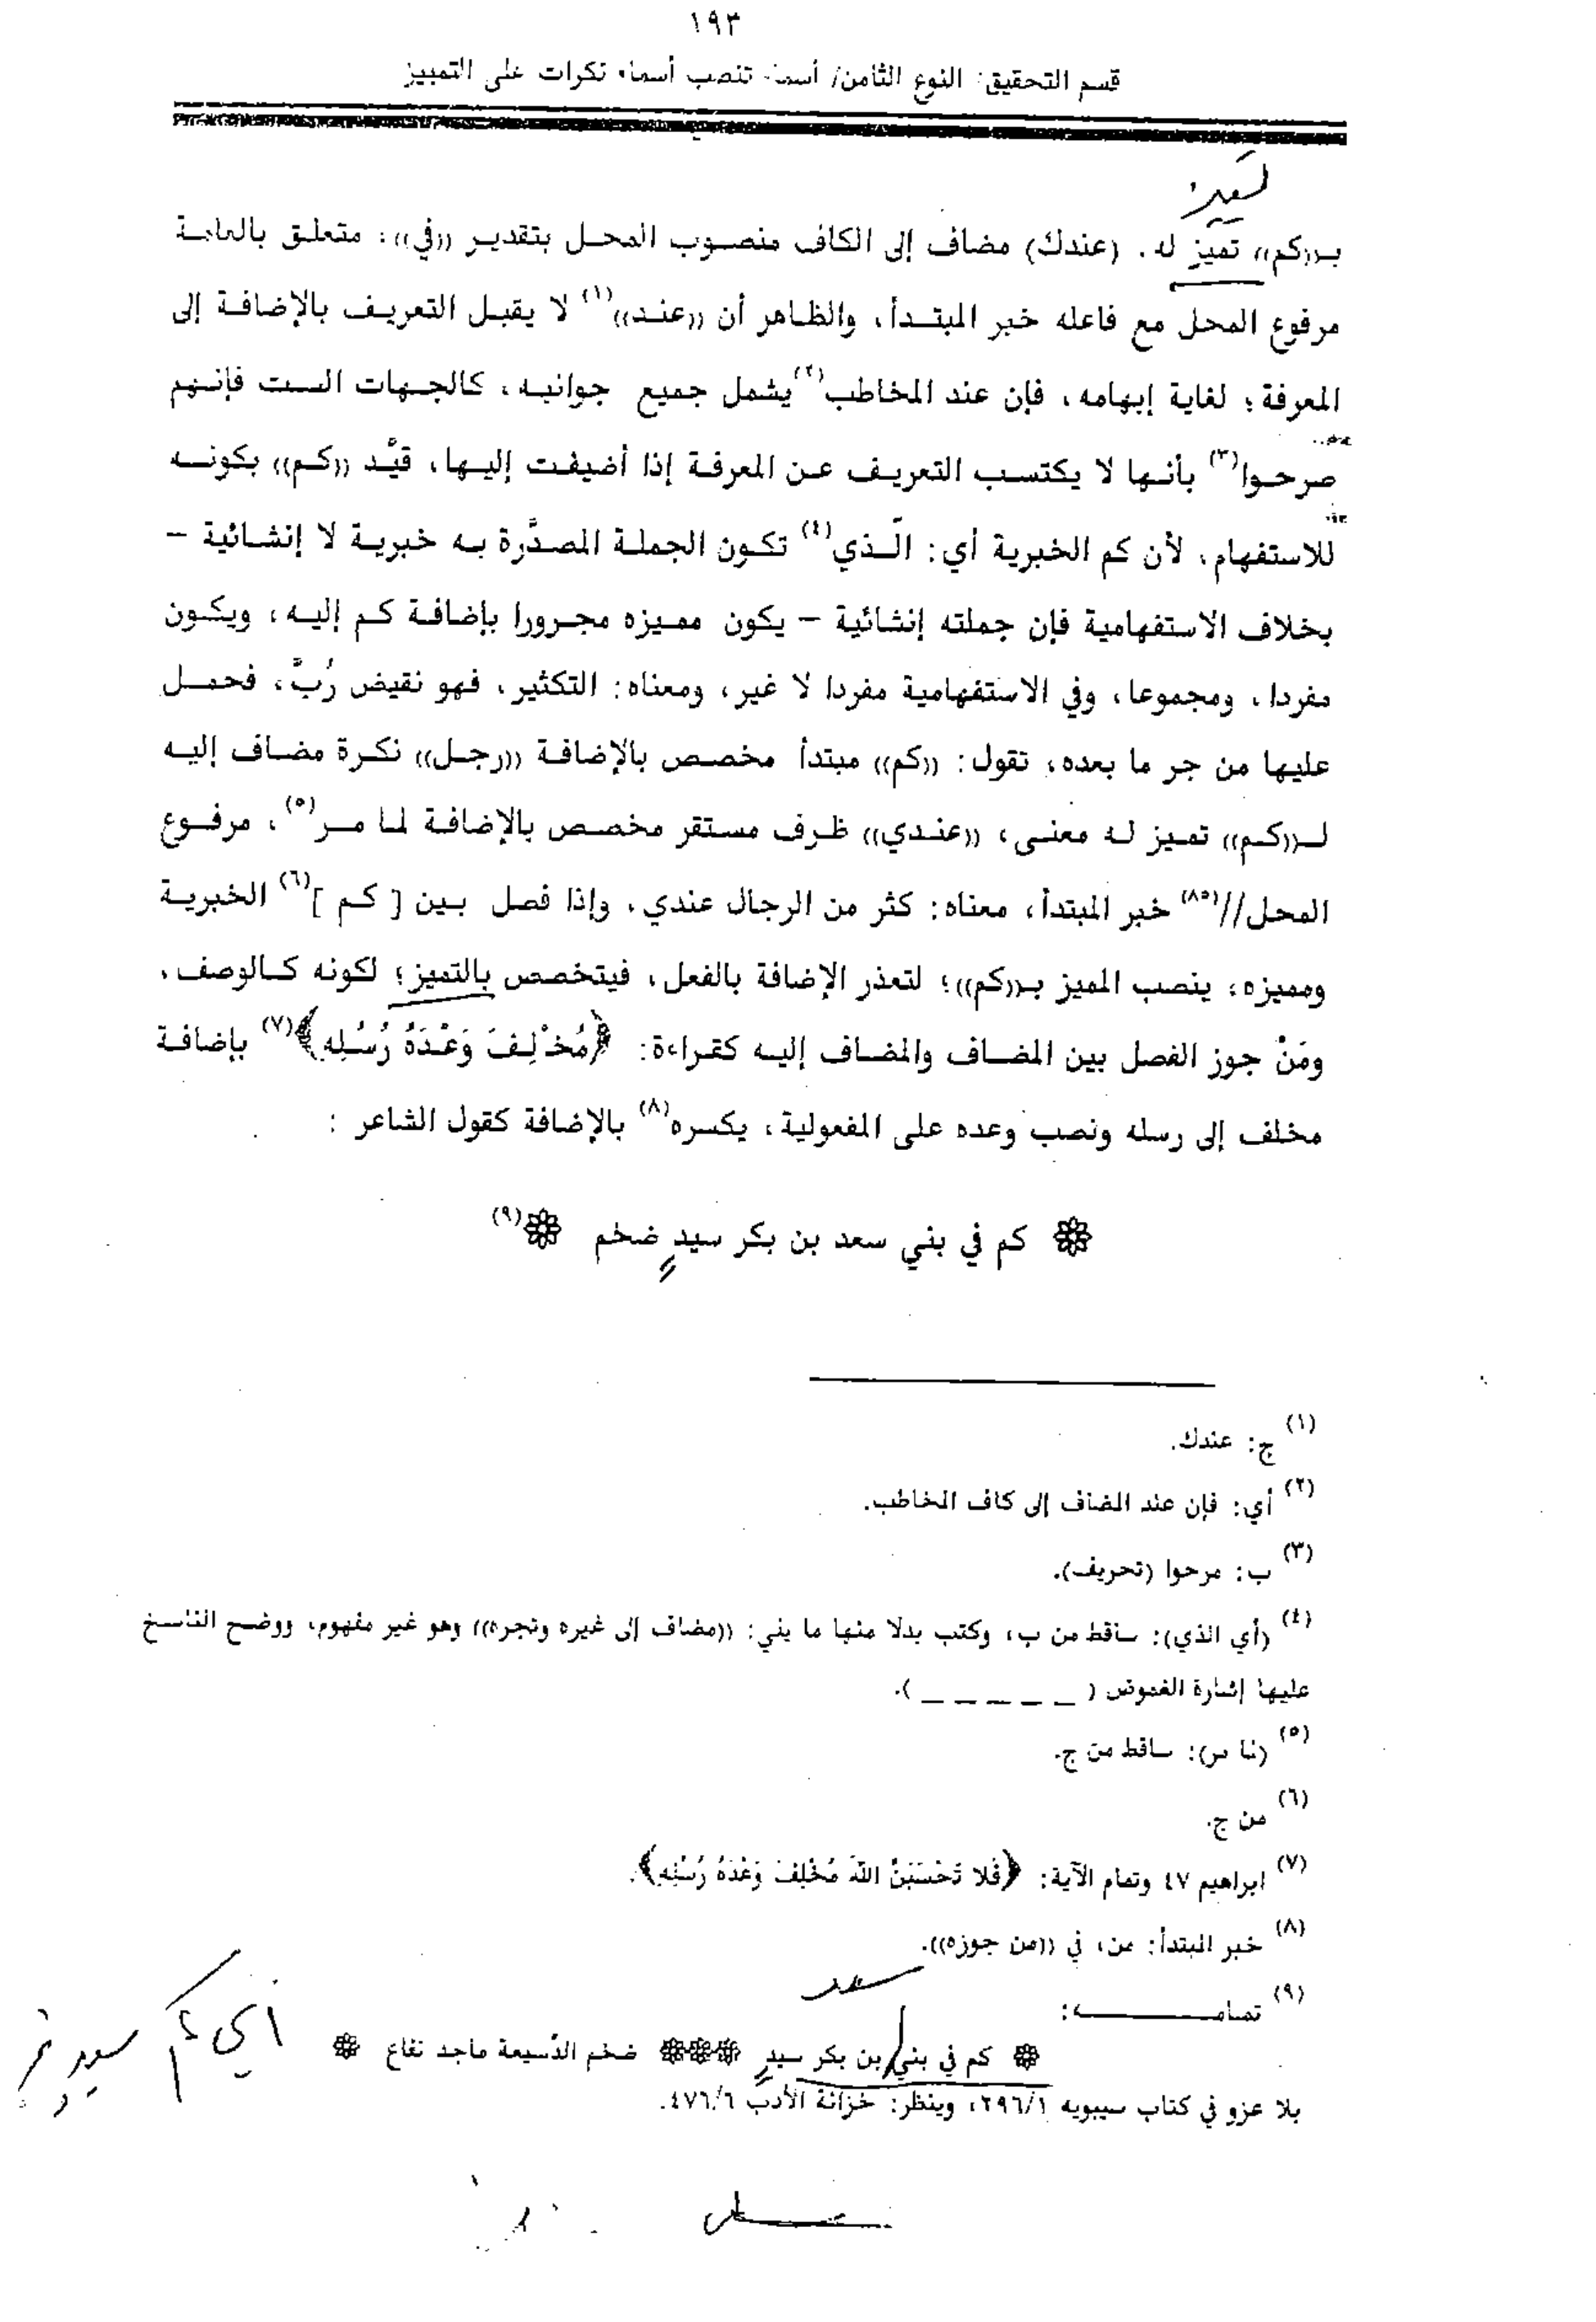 ١٩٣
قسم التحقيق: النوع الثامن/ أسماء تنصب أسماء نكرات على التمييز
بـ((كم)) تميز له. (عندك) مضاف إلى الكاف منصوب المحل بتقدير ((في))، متعلق بالعامة
مرفوع المحل مع فاعله خبر المبتدأ، والظاهر أن ((عند))(١) لا يقبل التعريف بالإضافة إلى
المعرفة؛ لغاية إبهامه، فإن عند المخاطب(٢) يشمل جميع جوانبه، كالجهات الست فإنهم
صرحوا(٣) بأنها لا يكتسب التعريف عن المعرفة إذا أضيفت إليها، قيَّد ((كم)) بكونه
للاستفهام، لأن كم الخبرية أي: الّذي(٤) تكون الجملة المصدَّرة به خبرية لا إنشائية –
بخلاف الاستفهامية فإن جملته إنشائية – يكون مميزه مجرورا بإضافة كم إليه، ويكون
مفردا، ومجموعا، وفي الاستفهامية مفردا لا غير، ومعناه: التكثير، فهو نقيض رُبَّ، فحمل
عليها من جر ما بعده، تقول: ((كم)) مبتدأ مخصص بالإضافة ((رجل)) نكرة مضاف إليه
لـ((كم)) تميز له معنى، ((عندي)) ظرف مستقر مخصص بالإضافة لما مر(٥)، مرفوع
المحل//(٨٥) خبر المبتدأ، معناه: كثر من الرجال عندي، وإذا فصل بين [ كم ](٦) الخبرية
ومميزه، ينصب المميز بـ((كم))؛ لتعذر الإضافة بالفعل، فيتخصص بالتميز؛ لكونه كالوصف،
ومَنْ جوز الفصل بين المضاف والمضاف إليه كقراءة: ﴿مُخْلِفَ وَعْدَهُ رُسُلِه﴾(٧) بإضافة
مخلف إلى رسله ونصب وعده على المفعولية، يكسره(٨) بالإضافة كقول الشاعر :
كم في بني سعد بن بكر سيدٍ ضخم (٩)
(١) ج: عندك.
(٢) أي: فإن عند المضاف إلى كاف المخاطب.
(٣) ب: مرحوا (تحريف).
(٤) (أي الذي): ساقط من ب، وكتب بدلا منها ما يلي: ((مضاف إلى غيره وتجره)) وهو غير مفهوم، ووضح الناسخ
عليها إشارة الغموض ( _ _ _ _ _ ).
(٥) (لما مر): ساقط من ج.
(٦) من ج.
(٧) ابراهيم ٤٧ وتمام الآية: ﴿فَلا تَحْسَبَنَّ اللهَ مُخْلِفَ وَعْدَهُ رُسُلِهِ﴾.
(٨) خبر المبتدأ: من، في ((من جوزه)).
(٩) تمامـه:
سعد
كم في بني بن بكر سيدٍ ضخم الدَّسيعة ماجد نفاع
بلا عزو في كتاب سيبويه ٢٩٦/١، وينظر: خزانة الأدب ٤٧٦/٦.